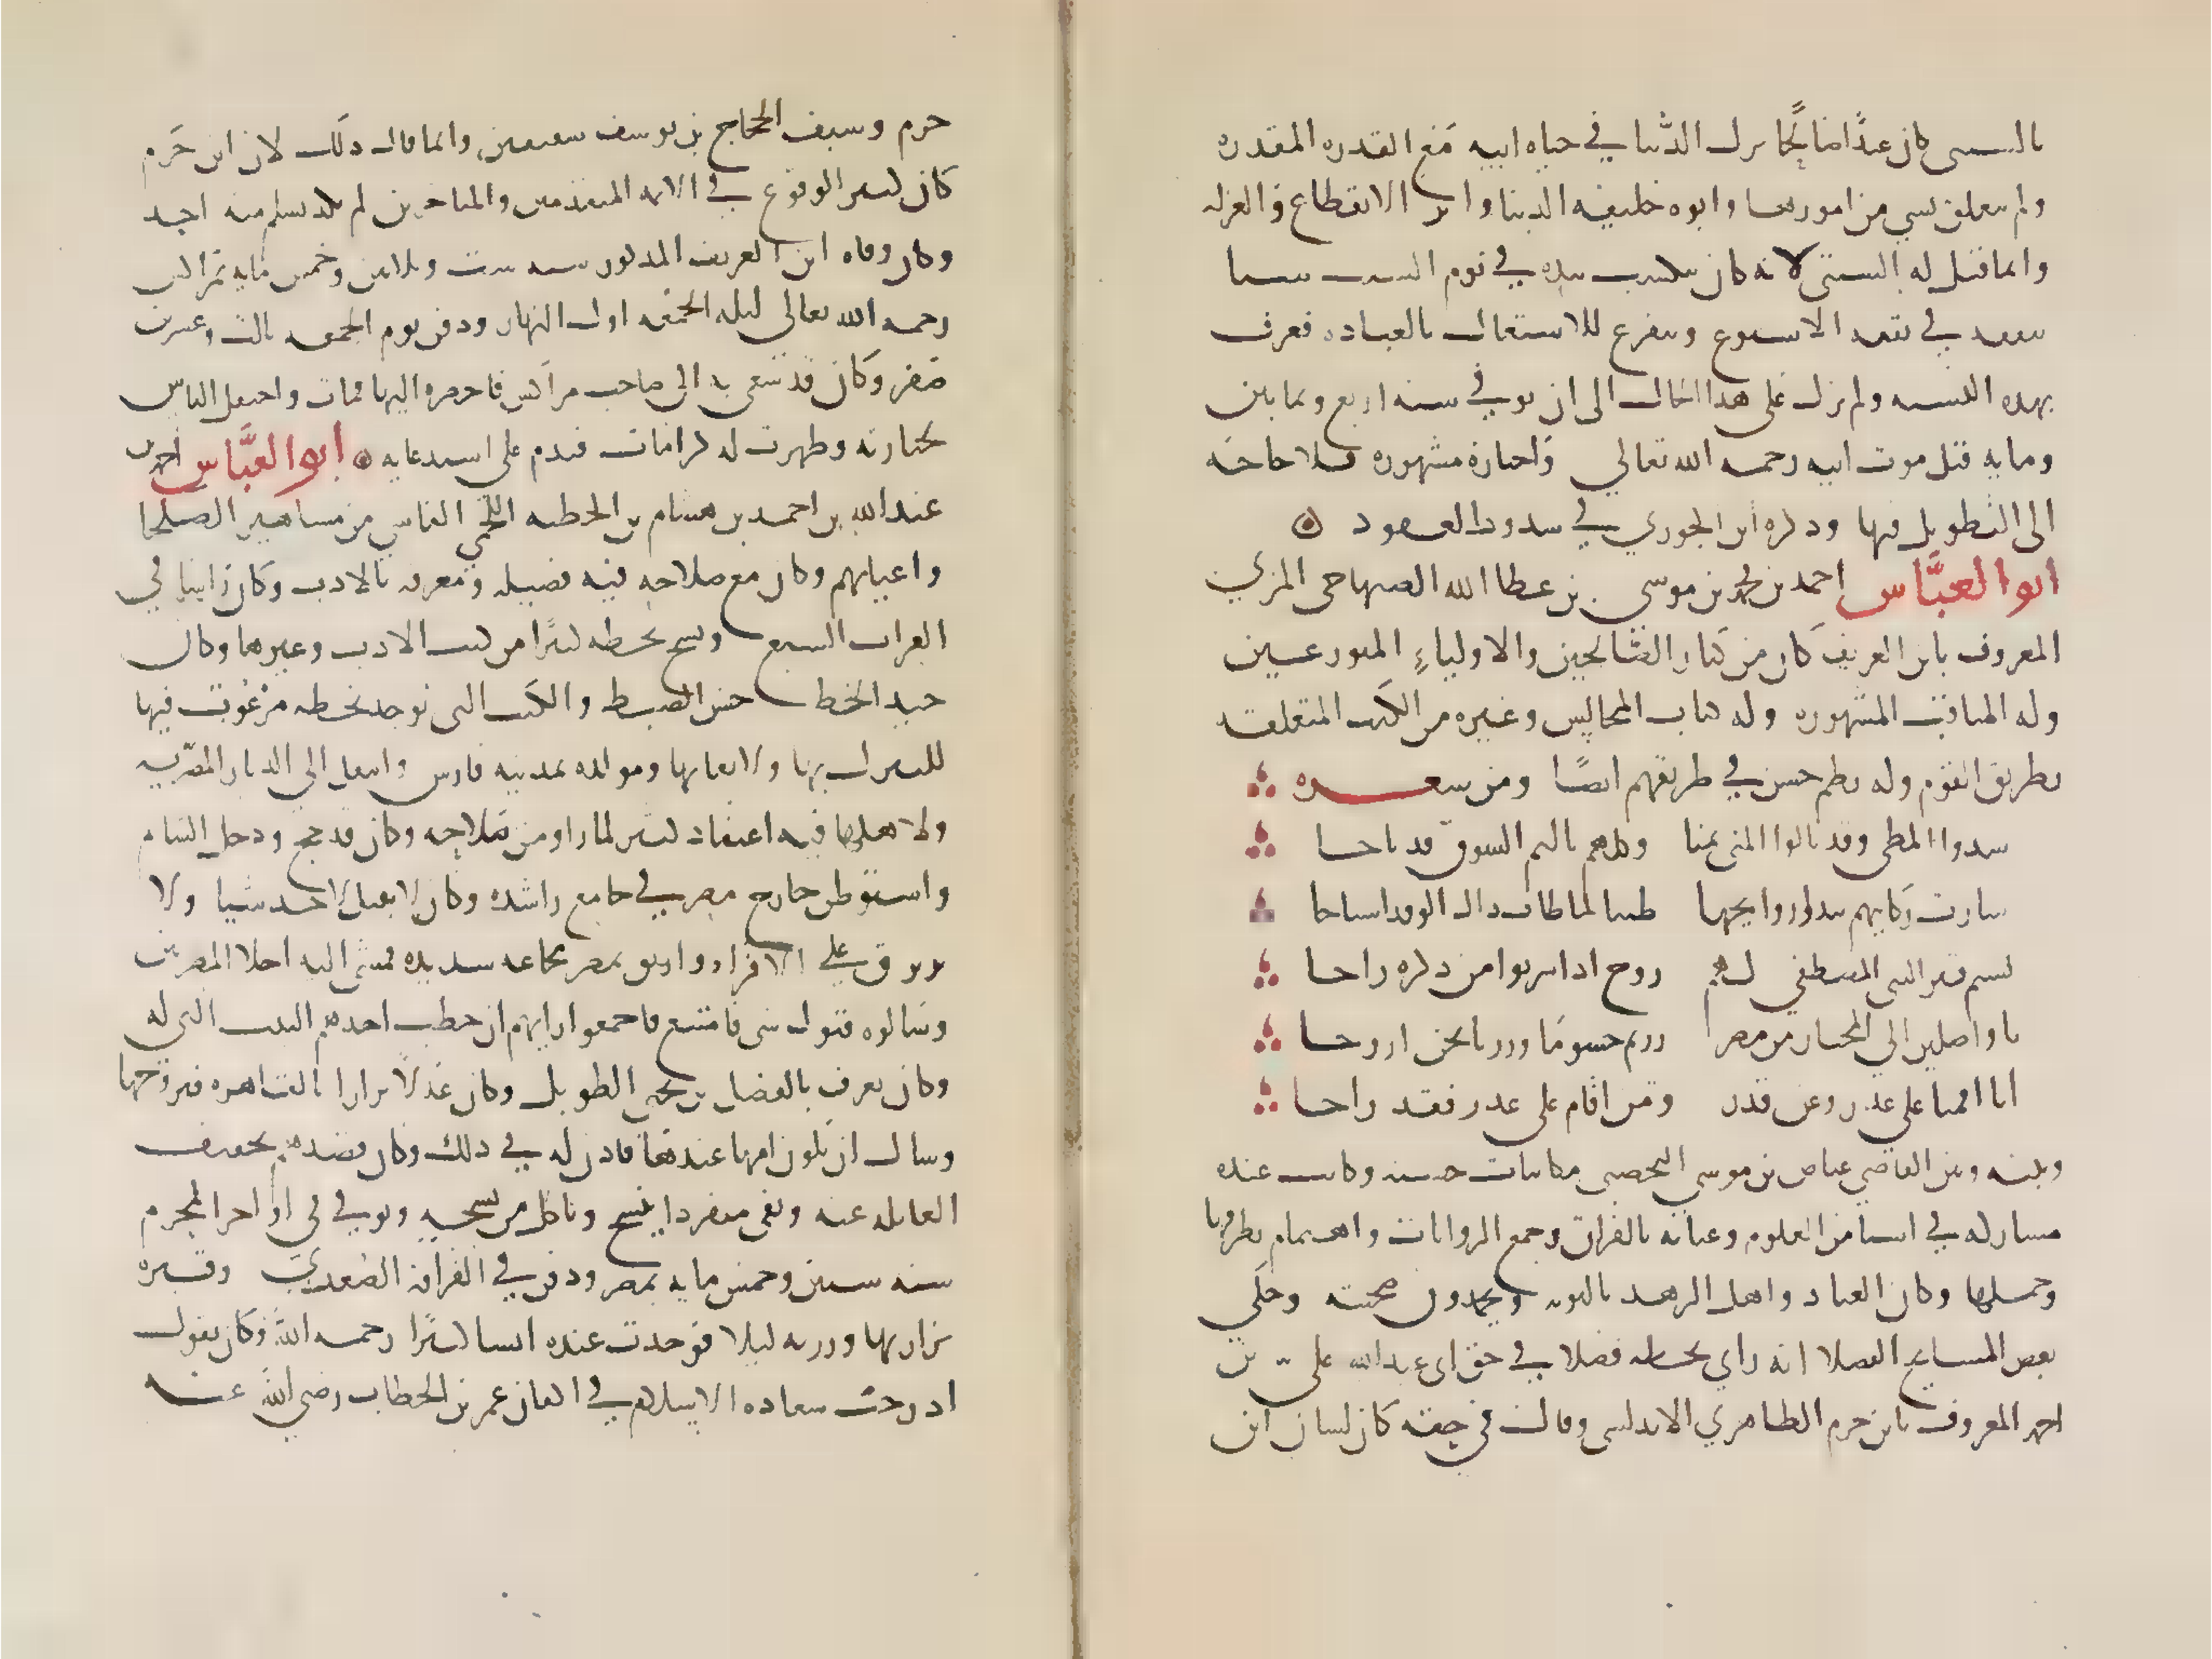 بالسبتي كان عبدا صالحا ترك الدنيا في حياه ابيه مع القدره المقدره
ولم يتعلق بشي من امورها وابوه خليفه الدنيا واثر الانقطاع والعزله
وانما قيل له السبتي لانه كان يكتسب بيده في يوم السبت شيا
ينفقه في بقيه الاسبوع ويتفرغ للاشتغال بالعباده فعرف
بهده النسبه ولم يزل على هدا الحال الى ان توفي سنه اربع وثمانين
ومايه قبل موت ابيه رحمه الله تعالي واخباره مشهوره فلا حاجه
الى التطويل فيها ودكره ابن الجوزي في شدور العقود
ابو العباس احمد بن محمد بن موسى بن عطا الله الصنهاجي المزي
المعروف بابن العريف كان من كبار الصالحين والاولياء المتورعين
وله المناقب المشهوره وله كتاب المجالس وغيره من الكتب المتعلقه
بطريق القوم وله نظم حسن في طريقهم ايضا ومن شعره
شدوا المطي وقد نالوا المنى بمنا وكلهم باليم الشوق قد باحا
سارت ركايبهم تبدوا روايحها طيبا لما طاف داك الوفد اشباحا
نسيم قبر النبي المصطفي لهم روح ادا شربوا من دكره راحا
يا واصلين الي المختار من مضر زرتم جسوما وزرنا نحن ارواحا
انا اقمنا على عدر وعن قدر ومن اقام على عدر فقد راحا
وبينه وبين القاضي عياض بن موسى اليحصبي مكاتبات حسنه وكانت عنده
مشاركه في اشيا من العلوم وعنايه بالقراات وجمع الروايات واهتمام بطرقها
وحملها وكان العباد واهل الزهد يالفونه ويحمدون صحبته وحكي
بعض المشايخ الفضلا انه راي بخطه فصلا في حق ابي عبد الله علي بن
احمد المعروف بابن حزم الظاهري الاندلسي وقال في حقه كان لسان ابن
حزم وسيف الحجاج بن يوسف شقيقين وانما قال دلك لان ابن حزم
كان كثير الوقوع في الايمه المتقدمين والمتاخرين لم يكد يسلم منه احد
وكان وفاه ابن العريف المدكور سنه ست وثلاثين وخمس مايه بمراكش
رحمه الله تعالى ليله الجمعه اول النهار ودفن يوم الجمعه ثالث وعشرين
صفر وكان قد سعى به الى صاحب مراكش فاحضره اليها فمات واحتفل الناس
بجنازته وظهرت له كرامات فندم على استدعايه ابو العباس احمد بن
عبد الله بن احمد بن هشام بن الحطيه اللخمي الفاسي من مشاهير الصلحا
واعيانهم وكان مع صلاحه فيه فضيله ومعرفه بالادب وكان راسا في
القراات السبع ونسخ بخطه كثيرا من كتب الادب وغيرها وكان
جيد الخط حسن الضبط والكتب التي توجد بخطه مرغوب فيها
للتبرك بها ولاتقانها ومولده بمدينه فارس وانتقل الي الديار المصريه
ولاهلها فيه اعتقاد كثير لما راو من صلاحه وكان قد حج ودخل الشام
واستوطن خارج مصر في جامع راشده وكان لا يقبل لاحد شيا ولا
يرتزق علي الاقراء واتفق بمصر مجاعه شديده فمشى اليه اجلا المصريين
وسالوه قبول شي فامتنع فاجمعوا رايهم ان خطب احدهم البنت التي له
وكان يعرف بالفضل بن يحيى الطويل وكان عدلا بزازا بالقاهره فتزوجها
وسال ان تكون امها عندها فادن له في دلك وكان قصدهم تخفيف
العايله عنه وبقى منفردا ينسخ وياكل من نسخه وتوفي في اواخر المحرم
سنه ستين وخمس مايه بمصر ودفن في القرافه الصغري وقبره
يزار بها وزرته ليلا فوجدت عنده انسا كثيرا رحمه الله وكان يقول
ادرجت سعاده الاسلام في اكفان عمر بن الخطاب رضي الله عنه